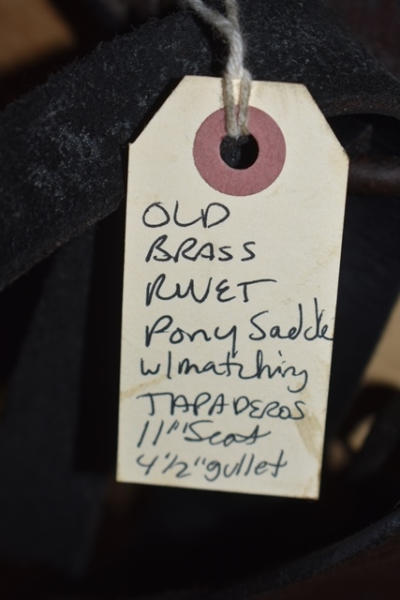 OLD
BRASS
RIVET
Pony Saddle
w/matching
TAPADEROS
11" Seat
4½" gullet